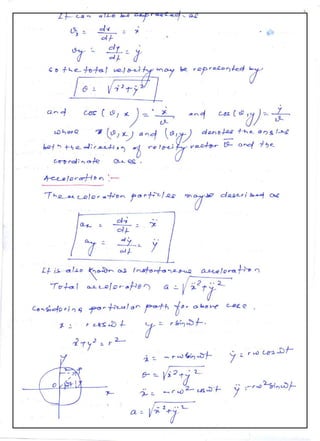 It can also be expressed as
ϑx = dx/dt = ẋ
ϑy = dy/dt = ẏ
so the total velocity may be represented by
ϑ = √(ẋ² + ẏ²)
and cos (ϑ, x) = ẋ/ϑ and cos (ϑ, y) = ẏ/ϑ
where (ϑ, x) and (ϑ, y) denotes the angles
betn the direction of velocity vector ϑ and the
coordinate axes.
Acceleration :-
The acceleration particles maybe described as
ax = dẋ/dt = ẍ
ay = dẏ/dt = ÿ
It is also known as Instantaneous acceleration
Total acceleration a = √(ẍ² + ÿ²)
Considering particular path for above case.
x = r cos ωt y = r sin ωt.
x² + y² = r²
ẋ = -rω sin ωt ẏ = rω cos ωt
ϑ = √(ẋ² + ẏ²)
ẍ = -rω² cos ωt ÿ = -rω² sin ωt
a = √(ẍ² + ÿ²)
y
O
x